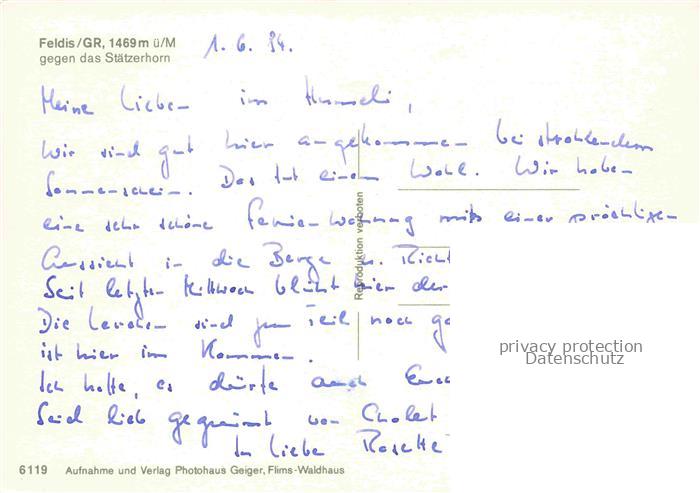 Feldis/GR, 1469 m ü/M
gegen das Stätzerhorn
1. 6. 84.
Meine Lieben im
Wir sind gut hier angekommen bei strahlendem
Sonnenschein. Das tut einem Wohl. Wir haben
eine sehr schöne Ferien-Wohnung mit einer prächtigen
Aussicht in die Berge u. Richt
Seit letzten Mittwoch blüht hier der
Die Lerchen sind zum Teil noch
ist hier im Kommen.
Ich hoffe, es dürfte auch
Seid lieb gegrüsst von Cholet
In Liebe Rosette
Reproduktion verboten
privacy protection
Datenschutz
6119 Aufnahme und Verlag Photohaus Geiger, Flims-Waldhaus